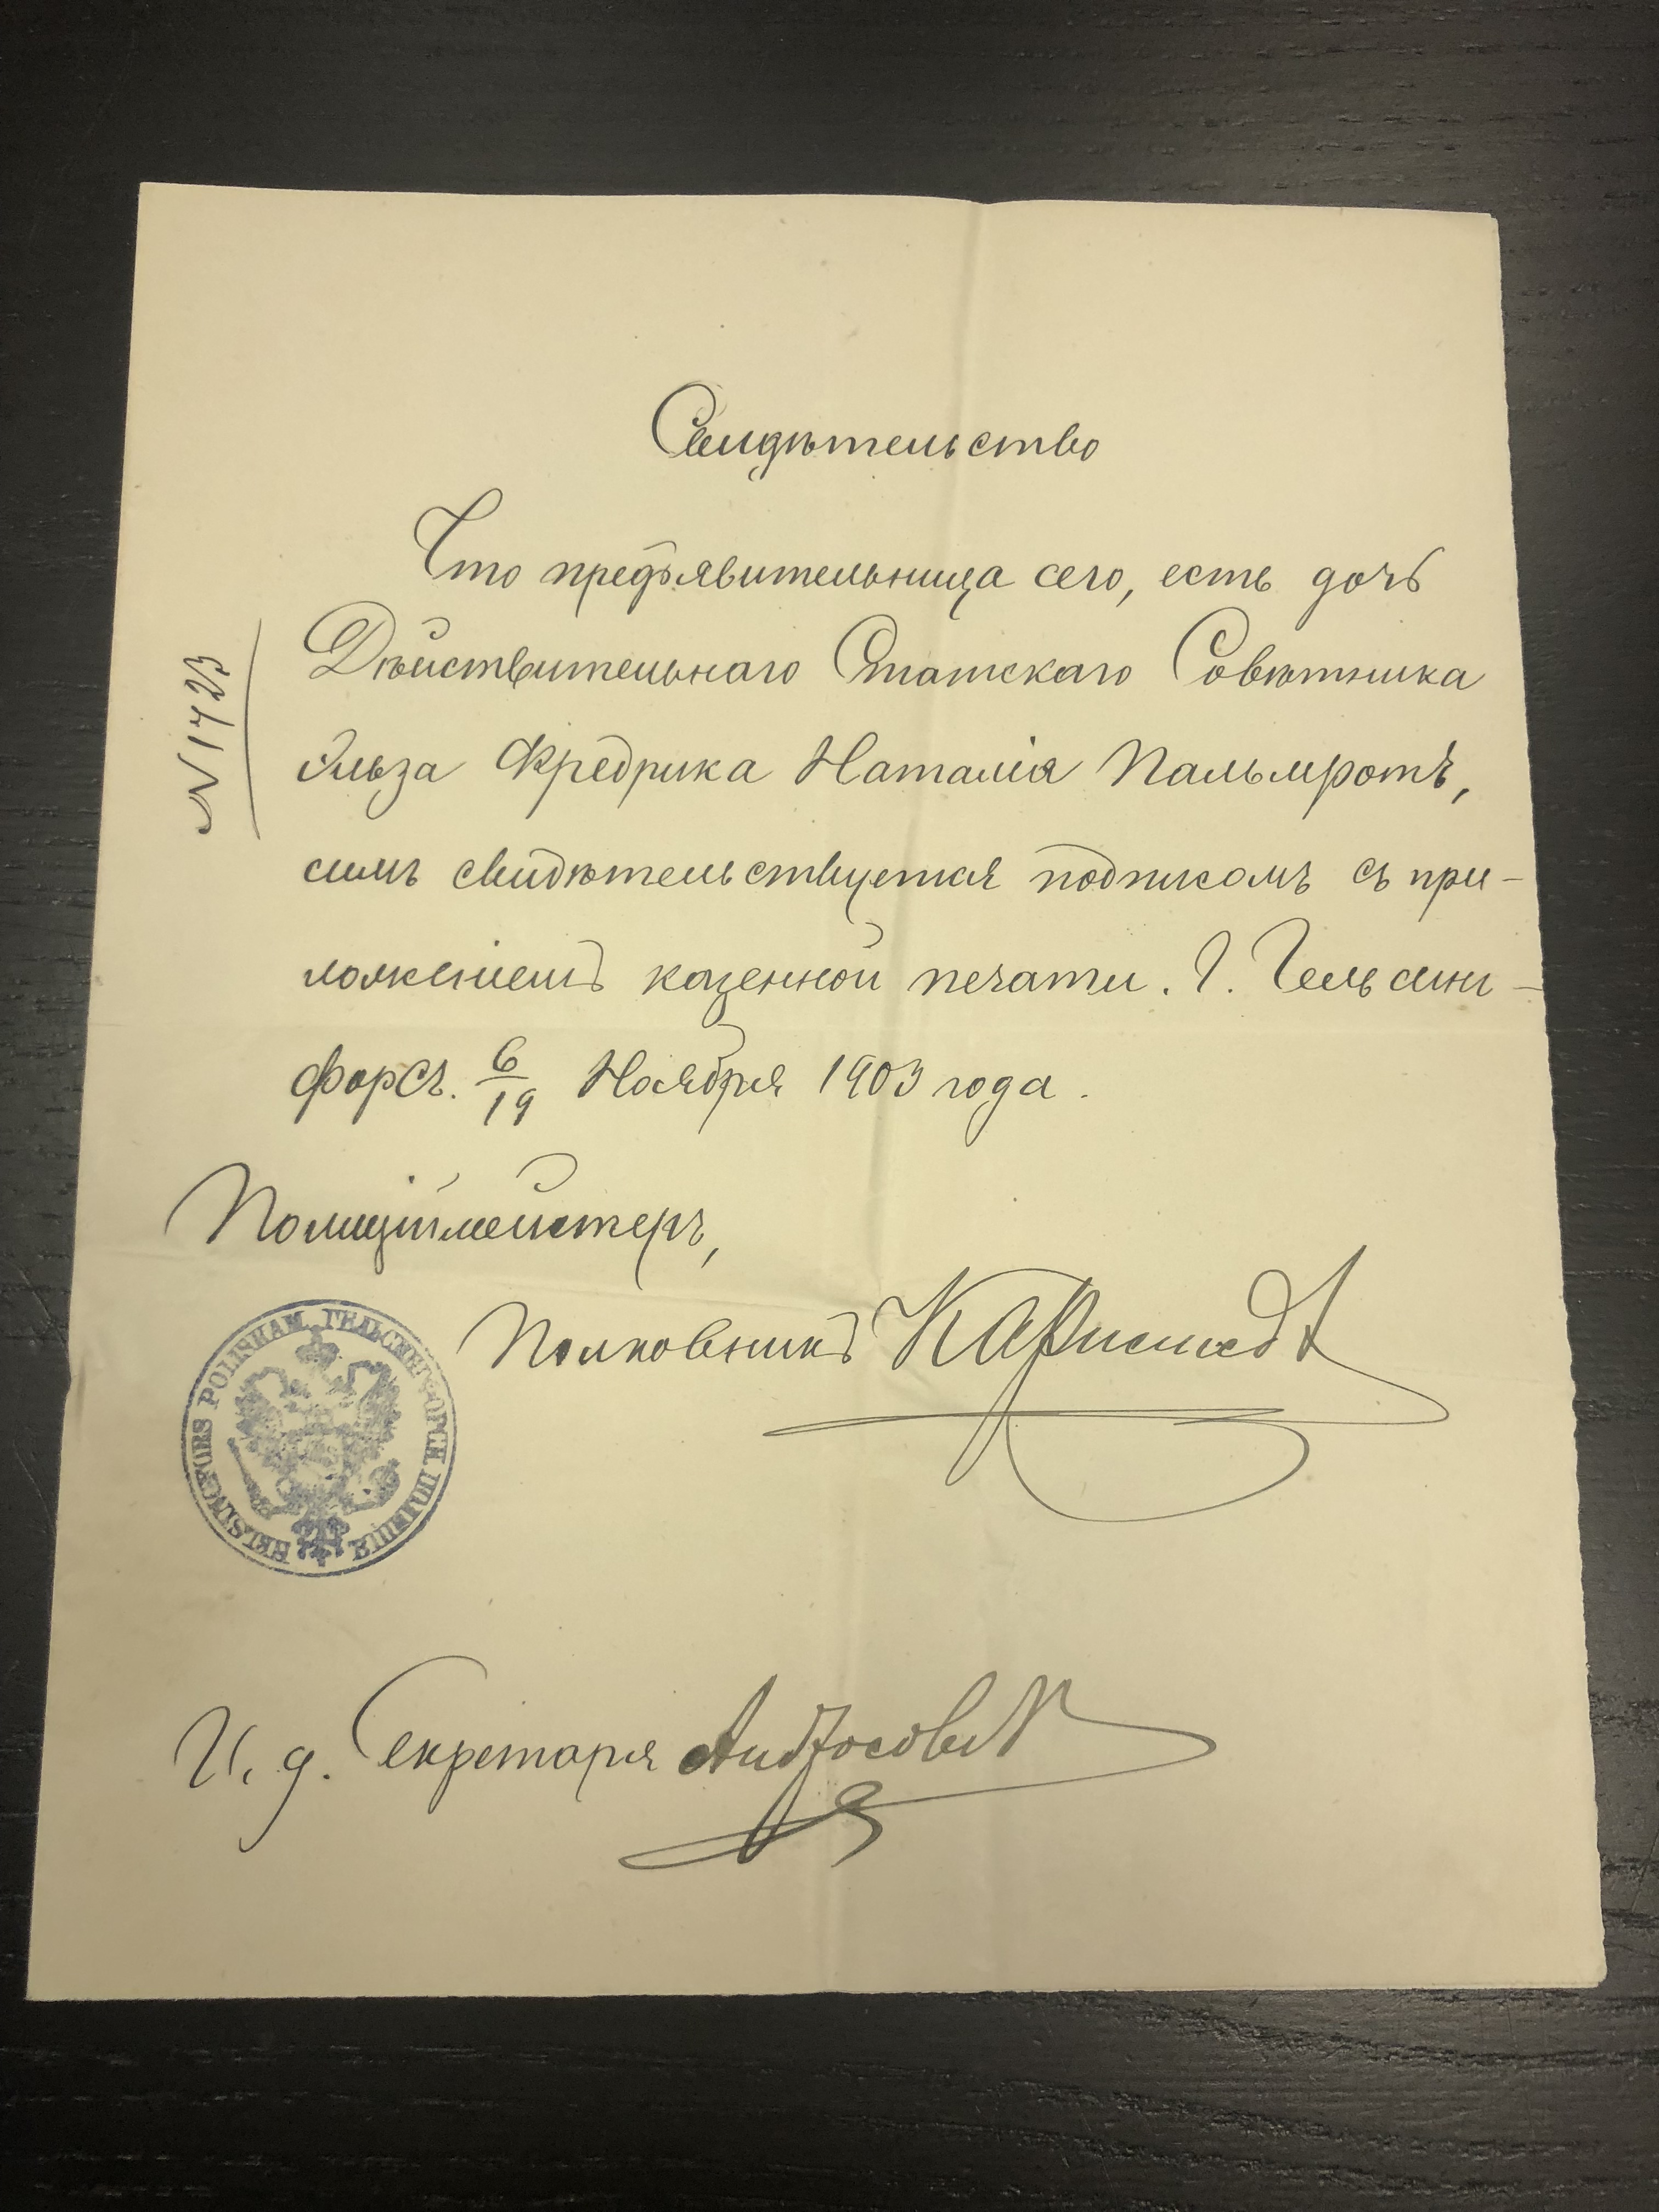 Свидѣтельство
Что предъявительница сего, есть дочь
Дѣйствительнаго Статскаго Совѣтника
Эльза Фредрика Наталія Пальмротъ,
симъ свидѣтельствуется подписомъ съ при-
ложеніемъ казенной печати. Г. Гельсинг-
форсъ. 6/19 Ноября 1903 года.
N 1723
Полиціймейстеръ,
Полковникъ Карлстедт
HELSINGFORS POLISKAM. ГЕЛЬСИНГФОРСК. ПОЛИЦІЯ
И. д. Секретаря